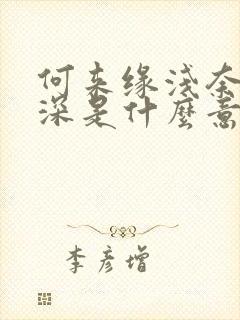 何来缘浅奈
深是什麼意
李彦增